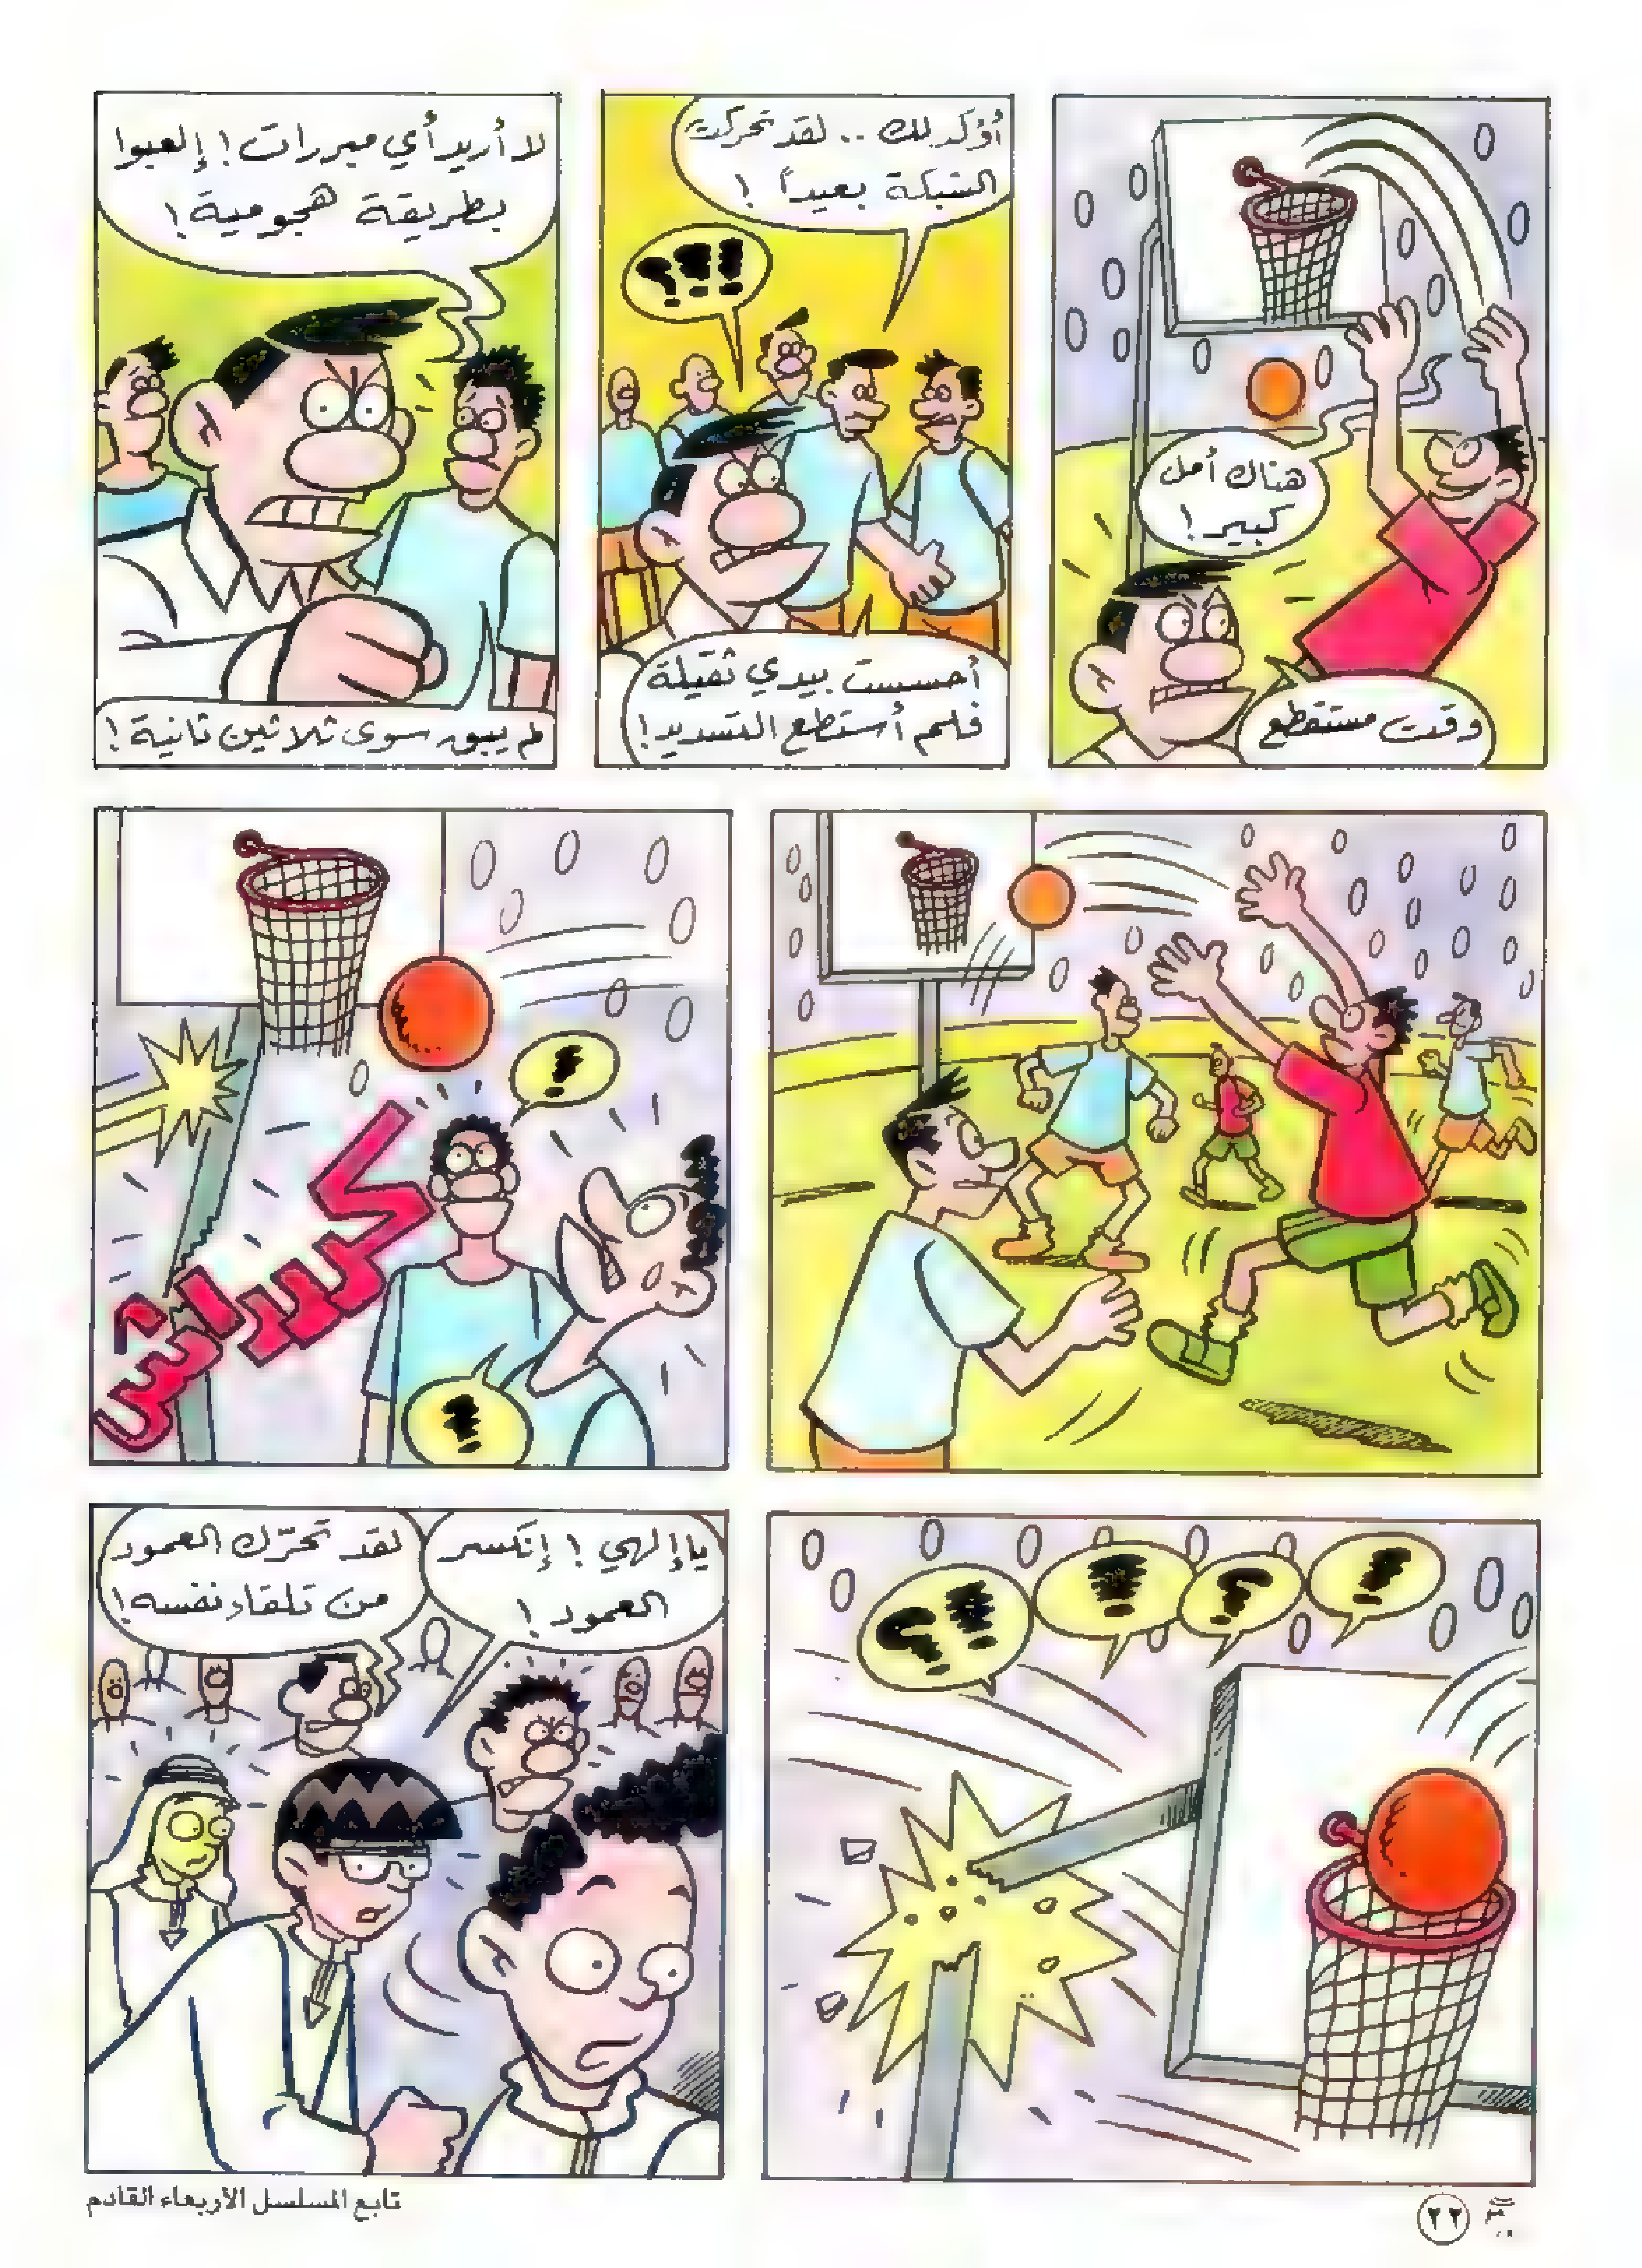 هناك أمل
كبير!
وقت مستقطع
أؤكد لك .. لقد تحركت
الشبكة بعيداً !
؟!!!
أحسست بيدي ثقيلة
فلم أستطع التسديد!
لا أريد أي مبررات! إلعبوا
بطريقة هجومية!
لم يبق سوى ثلاثين ثانية!
!
كريراش
!
!
؟!
!
؟!!
يا إلهي ! إنكسر
العمود !
لقد تحرّك العمود
من تلقاء نفسه!
٢٢
تابع المسلسل الاربعاء القادم